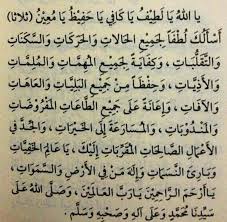 يَا اَللهُ يَا لَطِيْفُ يَا كَافِي يَا حَفِيْظُ يَا مُعِيْنُ (ثلاثا)
أَسْأَلُكَ لُطْفًا لِجَمِيْعِ الْحَالَاتِ وَالْحَرَكَاتِ وَالسَّكَنَاتِ
وَالتَّقَلُّبَاتِ، وَكِفَايَةً لِجَمِيْعِ الْمُهِمَّاتِ وَالْمُلِمَّاتِ
وَالْأَذِيَّاتِ، وَحِفْظًا مِنْ جَمِيْعِ الْبَلِيَّاتِ وَالْعَاهَاتِ
وَالْآفَاتِ، وَإِعَانَةً عَلَى جَمِيْعِ الطَّاعَاتِ الْمَفْرُوْضَاتِ
وَالْمَنْدُوْبَاتِ، وَالْمُسَارَعَةِ إِلَى الْخَيْرَاتِ، وَالْجِدِّ فِي
الْأَعْمَالِ الصَّالِحَاتِ الْمُقَرِّبَاتِ إِلَيْكَ، يَا عَالِمَ الْخَفِيَّاتِ
وَبَارِئَ النَّسَمَاتِ وَإِلٰهَ مَنْ فِي الْأَرْضِ وَالسَّمٰوَاتِ،
يَا أَرْحَمَ الرَّاحِمِيْنَ يَا رَبَّ الْعَالَمِيْنَ، وَصَلَّى اللهُ عَلَى
سَيِّدِنَا مُحَمَّدٍ وَعَلَى آلِهِ وَصَحْبِهِ وَسَلَّمَ.